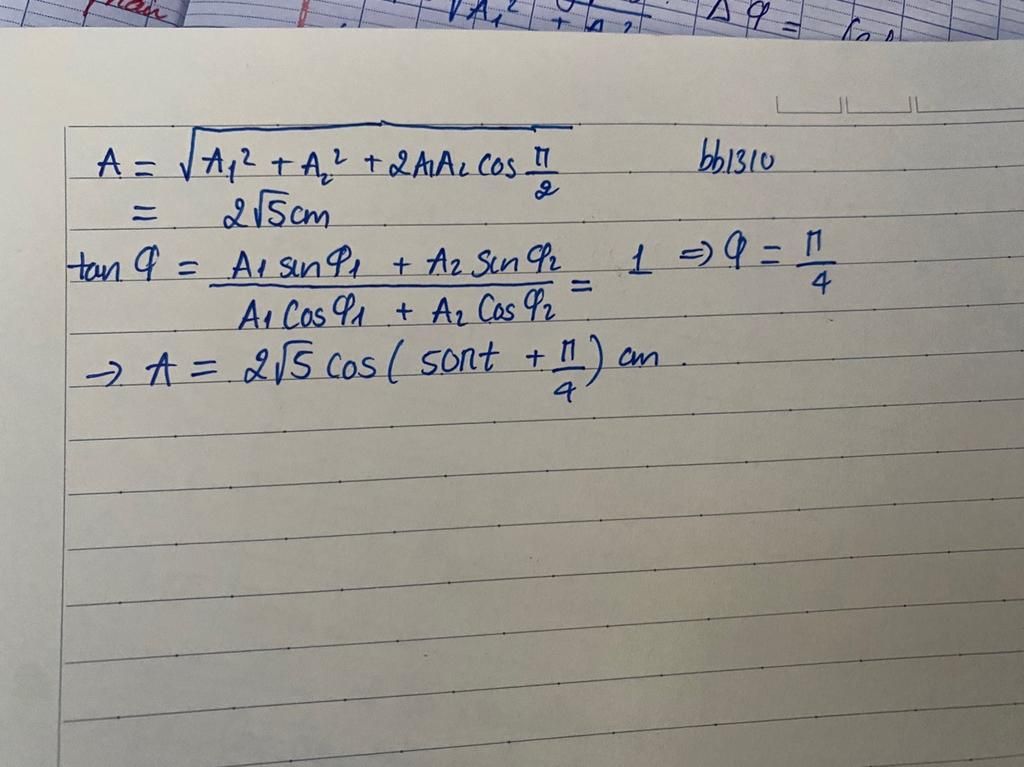 √A₁² + A₂² Δφ =
A = √A₁² + A₂² + 2A₁A₂ cos π/2 bb1310
= 2√5cm
tan φ = (A₁ sinφ₁ + A₂ sinφ₂)/(A₁ cosφ₁ + A₂ cosφ₂) = 1 ⇒ φ = π/4
→ A = 2√5 cos( 50πt + π/4 ) cm.